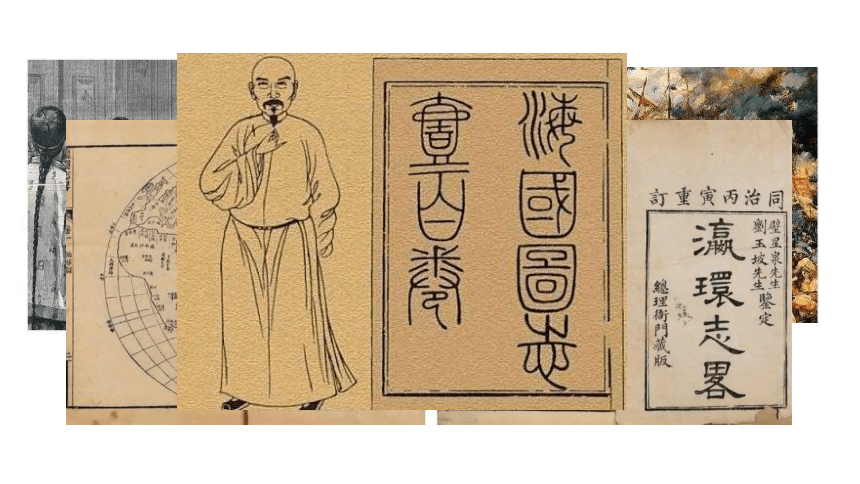 海國圖志
壹百卷
同治丙寅重訂
璧星泉先生
劉玉坡先生
鑒定
瀛環志畧
總理衙門藏版